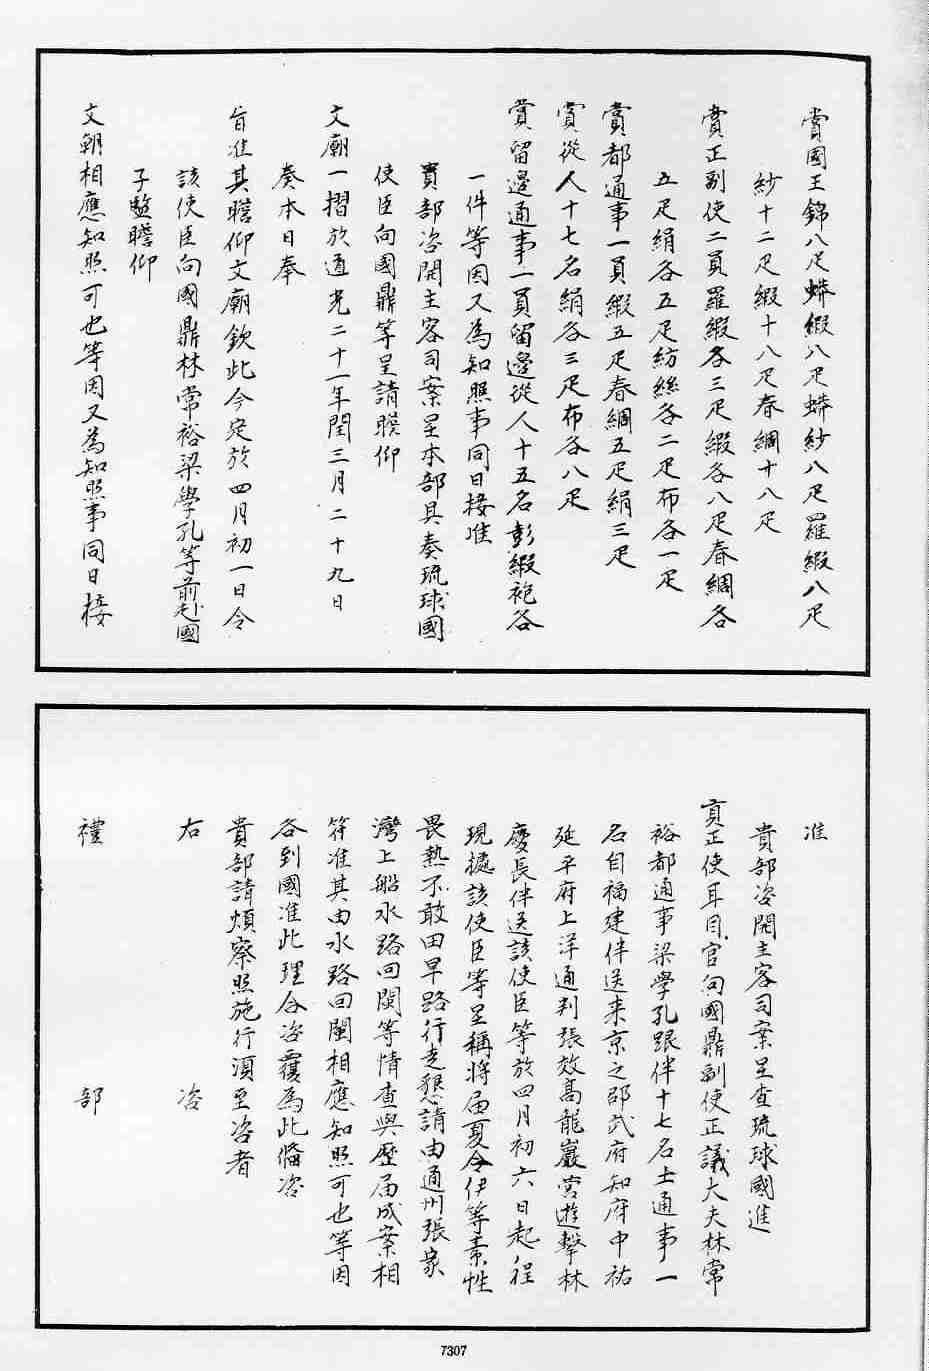 賞國王錦八疋蟒緞八疋蟒紗八疋羅緞八疋
紗十二疋緞十八疋春綢十八疋
賞正副使二員羅緞各三疋緞各八疋春綢各
五疋絹各五疋紡絲各二疋布各一疋
賞都通事一員緞五疋春綢五疋絹三疋
賞從人十七名絹各三疋布各八疋
賞留邊通事一員留邊從人十五名彭緞袍各
一件等因又為知照事同日接准
貴部咨開主客司案呈本部具奏琉球國
使臣向國鼎等呈請瞻仰
文廟一摺於道光二十一年閏三月二十九日
奏本日奉
旨准其瞻仰文廟欽此今定於四月初一日令
該使臣向國鼎林常裕梁學孔等前赴國
子監瞻仰
文朝相應知照可也等因又為知照事同日接
准
貴部咨開主客司案呈查琉球國進
貢正使耳目官向國鼎副使正議大夫林常
裕都通事梁學孔跟伴十七名土通事一
名自福建伴送來京之邵武府知府中祐
延平府上洋通判張效高龍巖營遊擊林
慶長伴送該使臣等於四月初六日起程
現據該使臣等呈稱將屆夏令伊等素性
畏熱不敢由旱路行走懇請由通州張家
灣上船水路回閩等情查與歷屆成案相
符准其由水路回閩相應知照可也等因
各到國准此理合咨覆為此備咨
貴部請煩察照施行須至咨者
右 咨
禮 部
7307